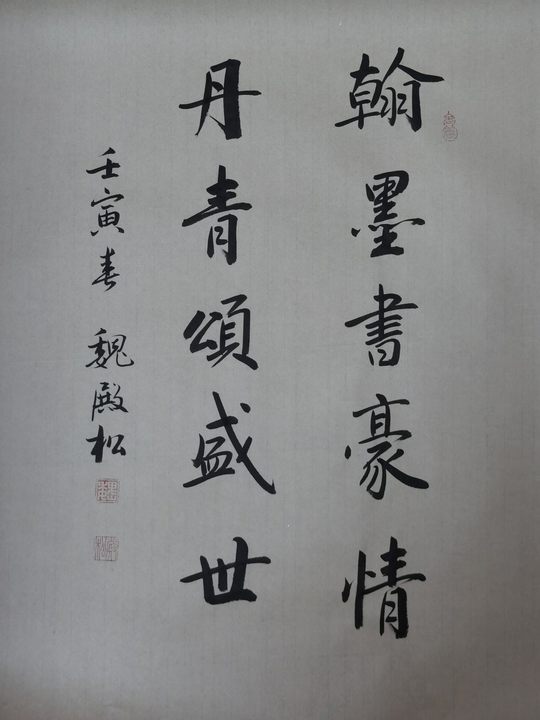 翰墨書豪情
丹青頌盛世
壬寅春 魏殿松